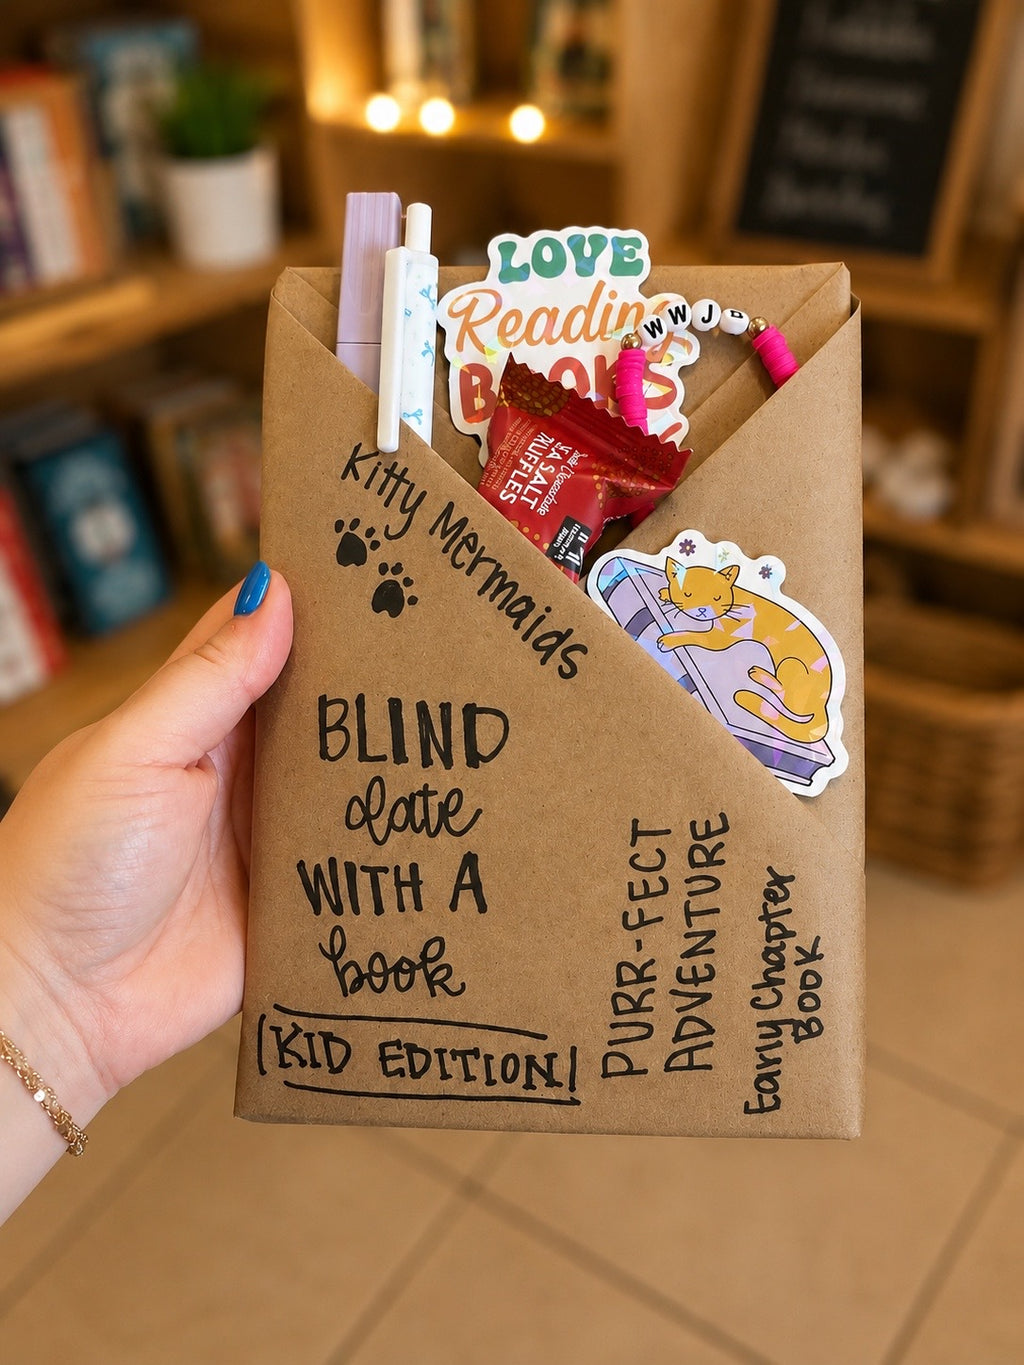 LOVE
Reading
BOOKS
WWJD
SEA SALT
TRUFFLES
Kitty Mermaids
BLIND
date
WITH A
book
KID EDITION
PURR-FECT
ADVENTURE
Early Chapter
BOOK